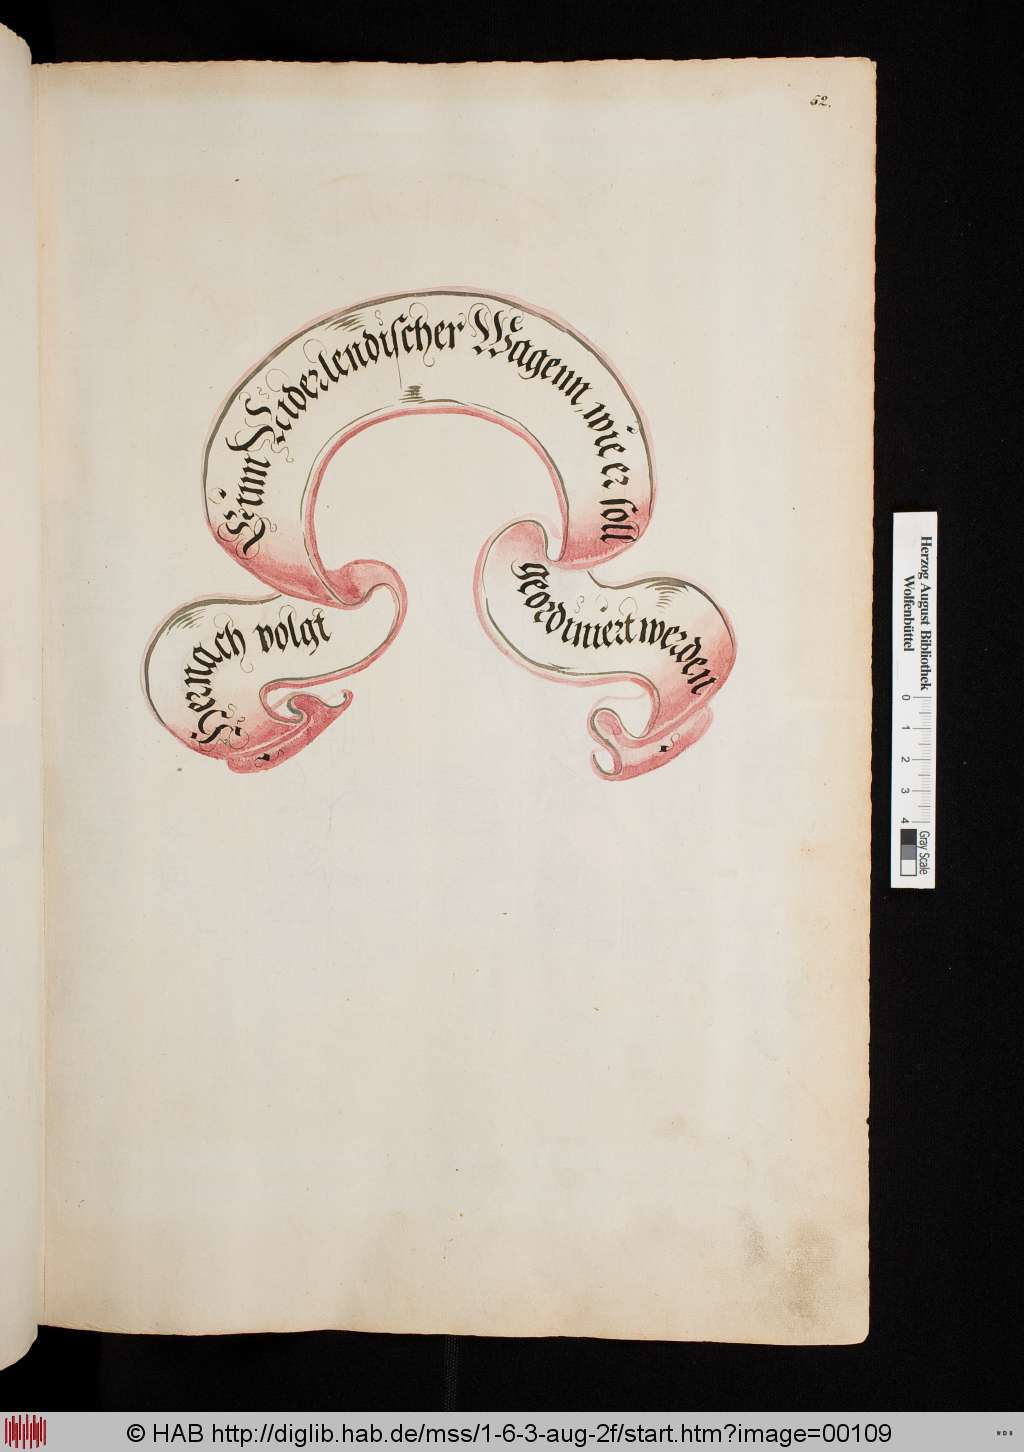 52.
Hernach volgt
Einn Niderlendischer Wagenn, wie er soll
geordiniert werden
Herzog August Bibliothek
Wolfenbüttel
0 1 2 3 4
Gray Scale
© HAB http://diglib.hab.de/mss/1-6-3-aug-2f/start.htm?image=00109